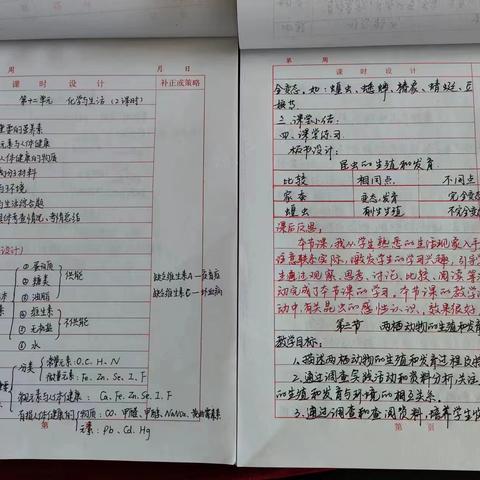 周
月 日
课 时 设 计
补正或策略
第十二单元 化学与生活(2课时)
重要的营养素
元素与人体健康
人体健康的物质
与环境
与生活综合题
设计)
① 蛋白质
② 糖类
③ 油脂
供能
④ 维生素
⑤ 无机盐
⑥ 水
不供能
缺乏维生素A—夜盲症
缺乏维生素C—坏血病
分类
常量元素:O.C.H.N
微量元素:Fe.Zn.Se.I.F
Ca.Fe.Zn.Se.I.F
物质:CO.甲醛.甲醇.NaNO₂.黄曲霉素
元素:Pb.Cd.Hg
第
第 周
课 时 设 计
全变态。如:蝗虫、蟋蟀、
三、课堂小结:
四、课堂练习:
板书设计:
昆虫的生殖和发育
比较 相同点 不同点
家蚕 变态发育 完全变态
蝗虫 有性生殖 不完全变
课后反思:
本节课,我从学生熟悉的生活现象入手
注意联系实际,激发学生的学习兴趣,引导学
生通过观察、思考、讨论、比较、阅读等活
动完成了本节课的学习。本节课的教学活
动中,有关昆虫的感性认识,效果很好
第三节 两栖动物的生殖和发育
教学目标:
1、描述两栖动物的生殖和发育过程及特
2、通过调查实践活动和资料分析,关注
的生殖和发育与环境的相互关系。
3、通过调查和查阅资料,培养学生
第 页